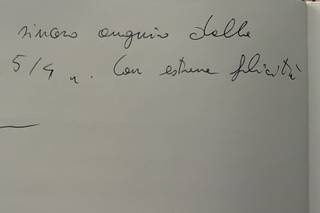 sincero augurio dalla
5/4 u. Con estrema felicità